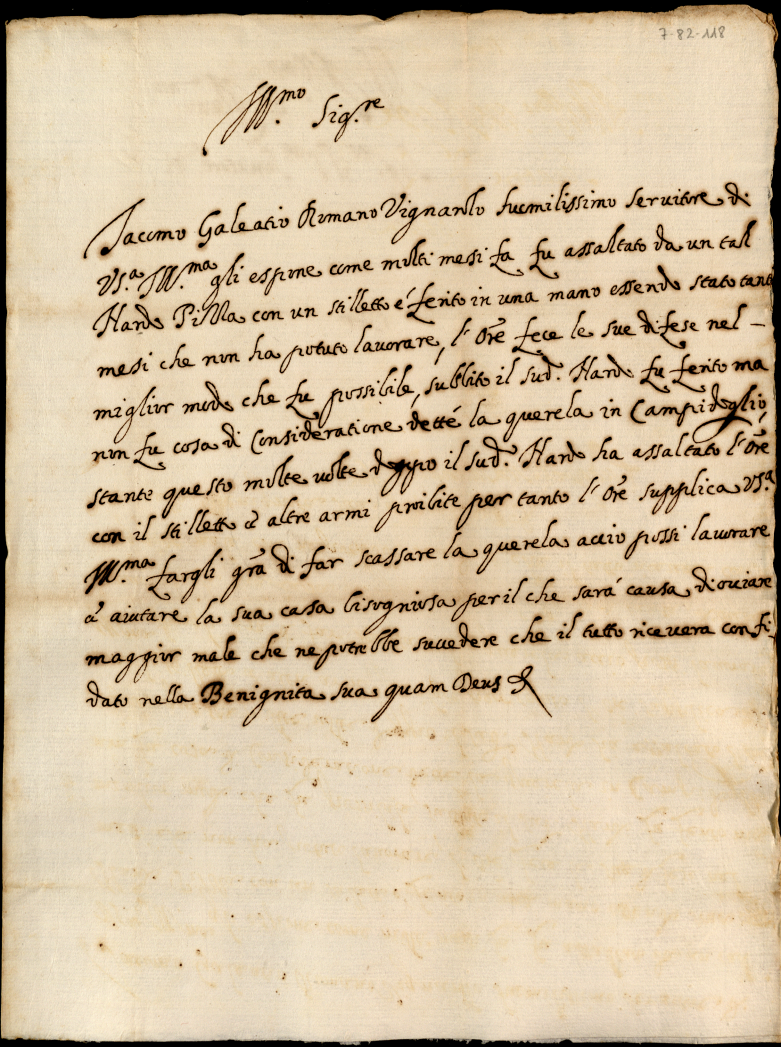 7-82-118
Ill.mo Sig.re
Iacomo Galeatio Romano Vignarolo humilissimo servitore di
VS.a Ill.ma gli espone come molti mesi fa fu assaltato da un tal
Nardo Pilla con un stiletto e ferito in una mano essendo stato tanti
mesi che non ha potuto lavorare, l'Ore fece le sue difese nel-
miglior modo che fu possibile, subbito il sud.o Nardo fu ferito ma
non fu cosa di Consideratione dette la querela in Campidoglio,
stante questo molte volte doppo il sud.o Nardo ha assaltato l'Ore
con il stiletto et altre armi proibite per tanto l'Ore supplica VS.a
Ill.ma fargli gra di far scassare la querela accio possi lavorare
et aiutare la sua casa bisogniosa per il che sarà causa di oviare
maggior male che ne potrebbe succedere che il tutto ricevera confi-
dato nella Benignita sua quam Deus